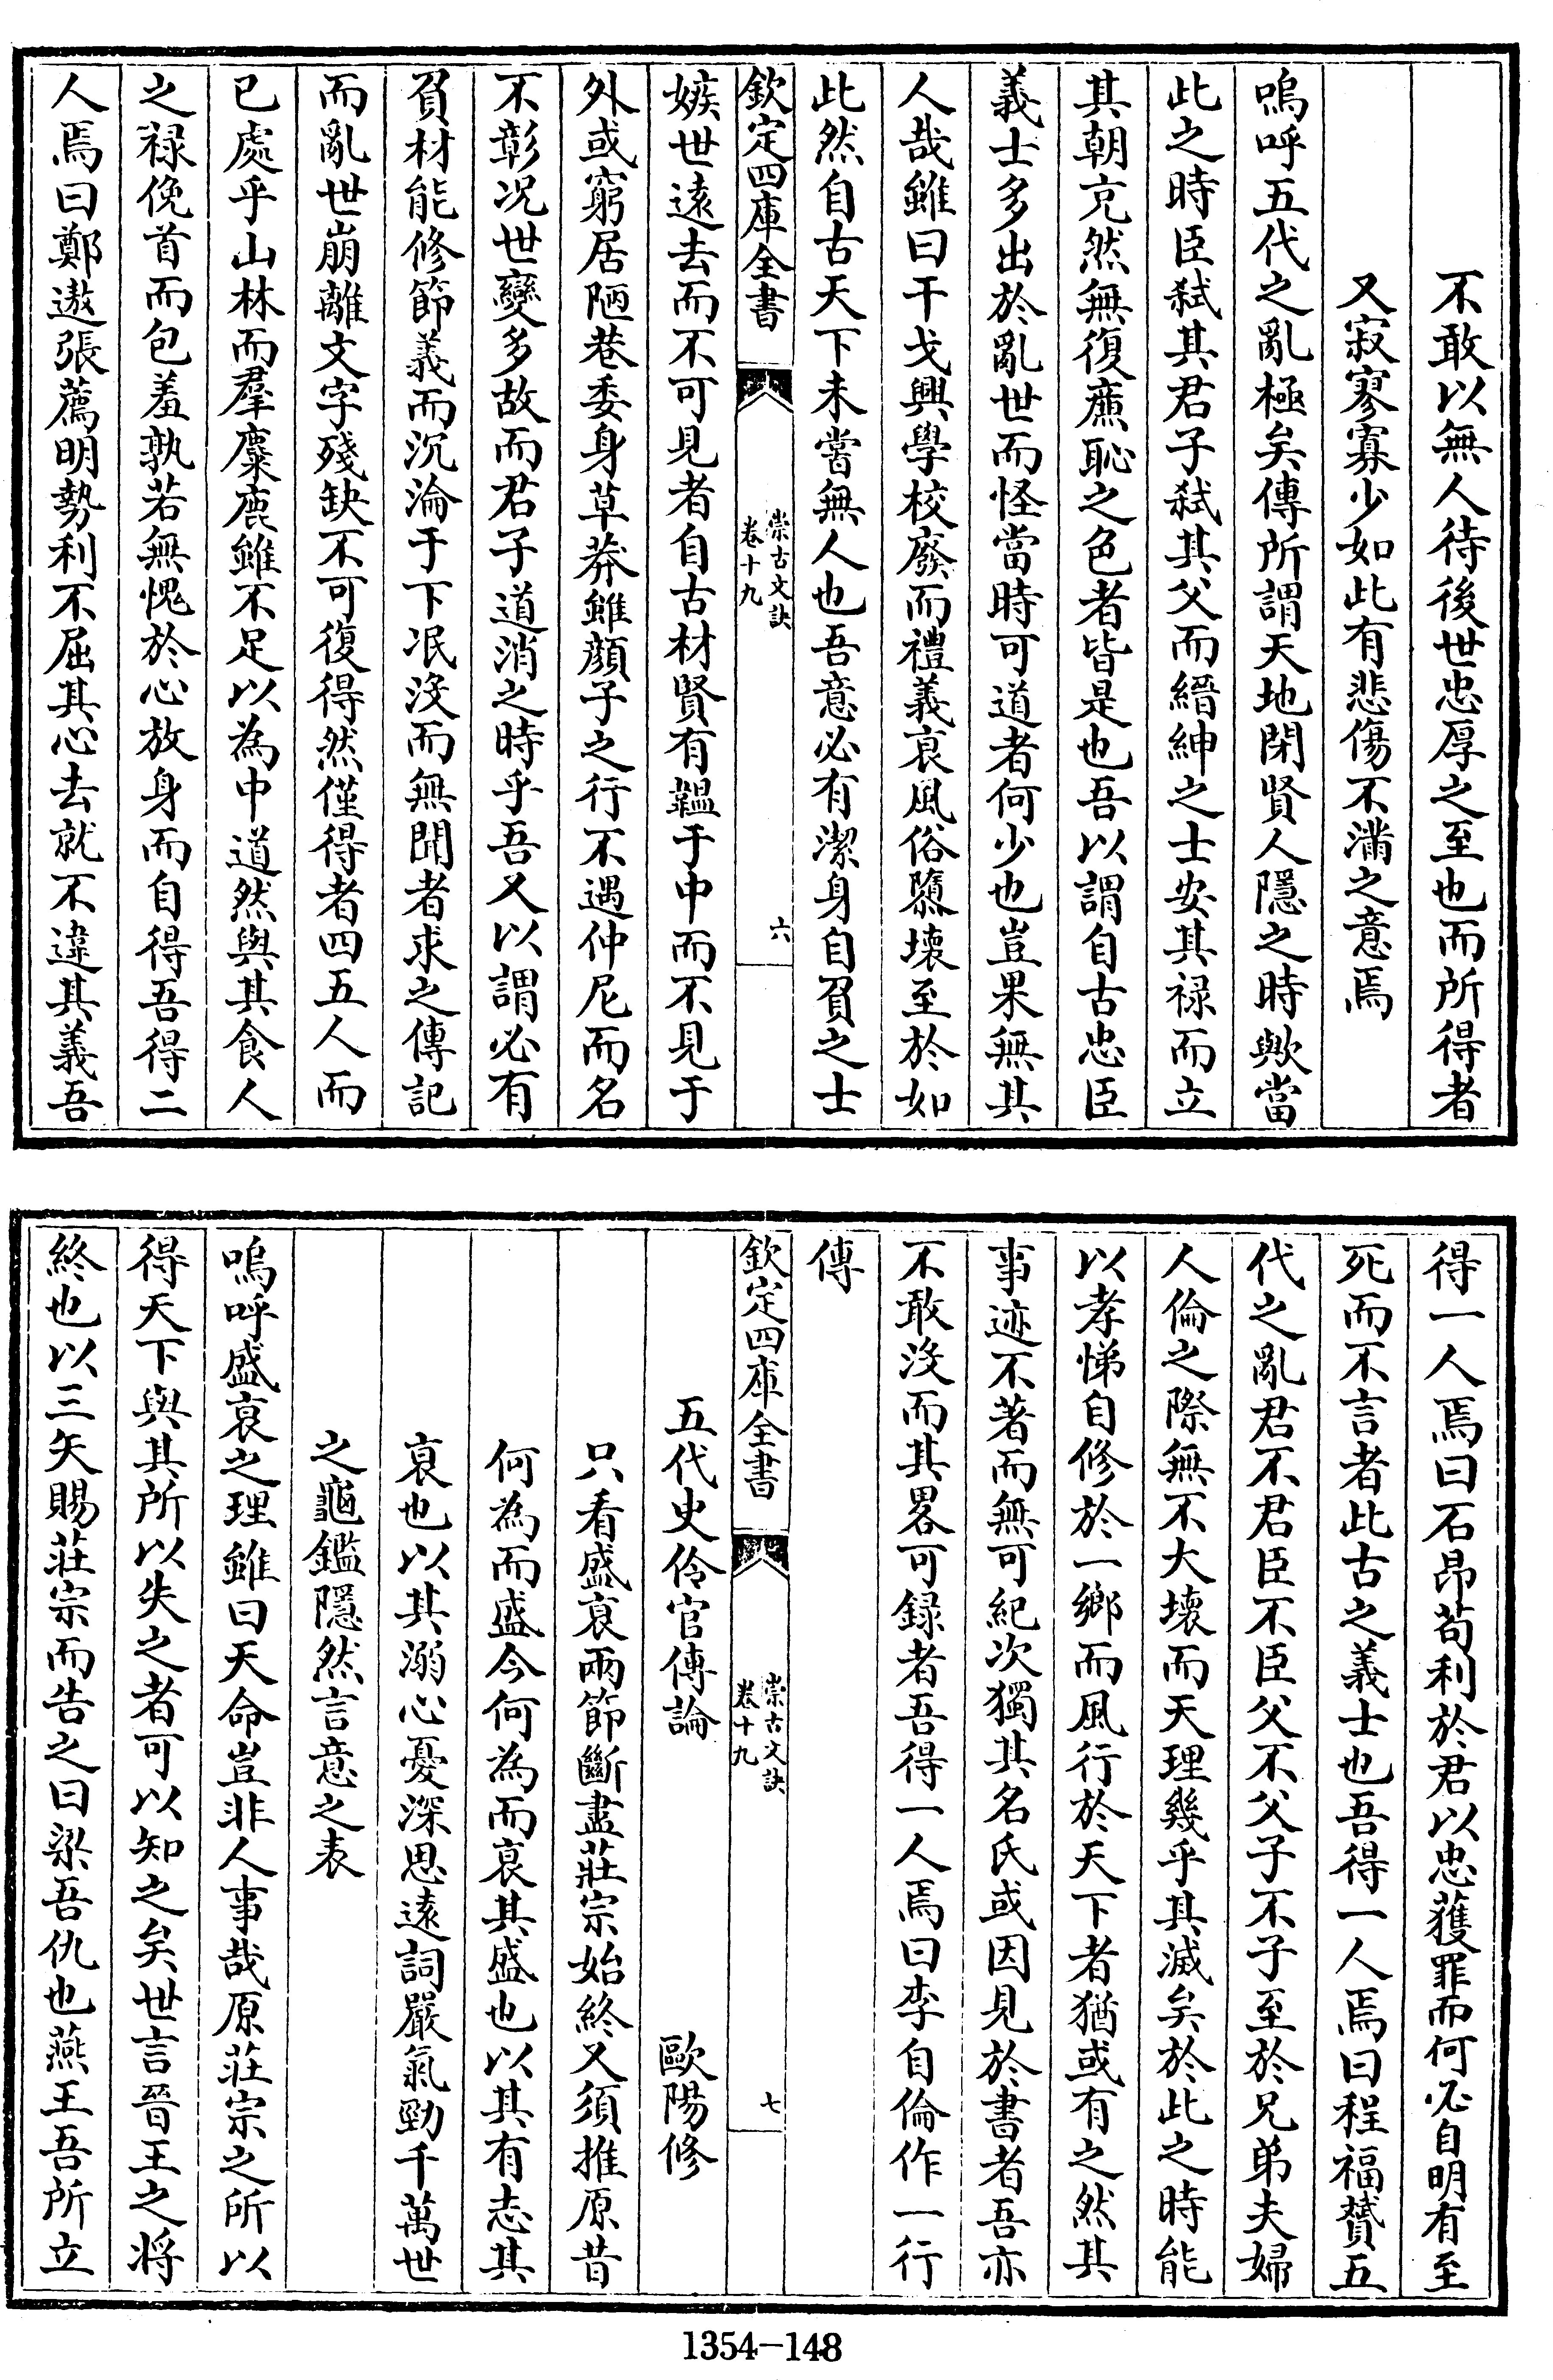 不敢以無人待後世忠厚之至也而所得者
又寂寥寡少如此有悲傷不滿之意焉
嗚呼五代之亂極矣傳所謂天地閉賢人隱之時歟當
此之時臣弑其君子弑其父而縉紳之士安其禄而立
其朝充然無復廉恥之色者皆是也吾以謂自古忠臣
義士多出於亂世而怪當時可道者何少也豈果無其
人哉雖曰干戈興學校廢而禮義衰風俗隳壞至於如
此然自古天下未嘗無人也吾意必有潔身自負之士
欽定四庫全書
崇古文訣
卷十九
六
嫉世遠去而不可見者自古材賢有韞于中而不見于
外或窮居陋巷委身草莽雖顔子之行不遇仲尼而名
不彰况世變多故而君子道消之時乎吾又以謂必有
負材能修節義而沉淪于下泯沒而無聞者求之傳記
而亂世崩離文字殘缺不可復得然僅得者四五人而
已處乎山林而羣麋鹿雖不足以為中道然與其食人
之禄俛首而包羞孰若無愧於心放身而自得吾得二
人焉曰鄭遨張薦明勢利不屈其心去就不違其義吾
得一人焉曰石昂苟利於君以忠獲罪而何必自明有至
死而不言者此古之義士也吾得一人焉曰程福贇五
代之亂君不君臣不臣父不父子不子至於兄弟夫婦
人倫之際無不大壞而天理幾乎其滅矣於此之時能
以孝悌自修於一鄉而風行於天下者猶或有之然其
事迹不著而無可紀次獨其名氏或因見於書者吾亦
不敢沒而其畧可録者吾得一人焉曰李自倫作一行
傳
欽定四庫全書
崇古文訣
卷十九
七
五代史伶官傳論 歐陽修
只看盛衰兩節斷盡莊宗始終又須推原昔
何為而盛今何為而衰其盛也以其有志其
衰也以其溺心憂深思遠詞嚴氣勁千萬世
之龜鑑隱然言意之表
嗚呼盛衰之理雖曰天命豈非人事哉原莊宗之所以
得天下與其所以失之者可以知之矣世言晉王之將
終也以三矢賜莊宗而告之曰梁吾仇也燕王吾所立
1354-148